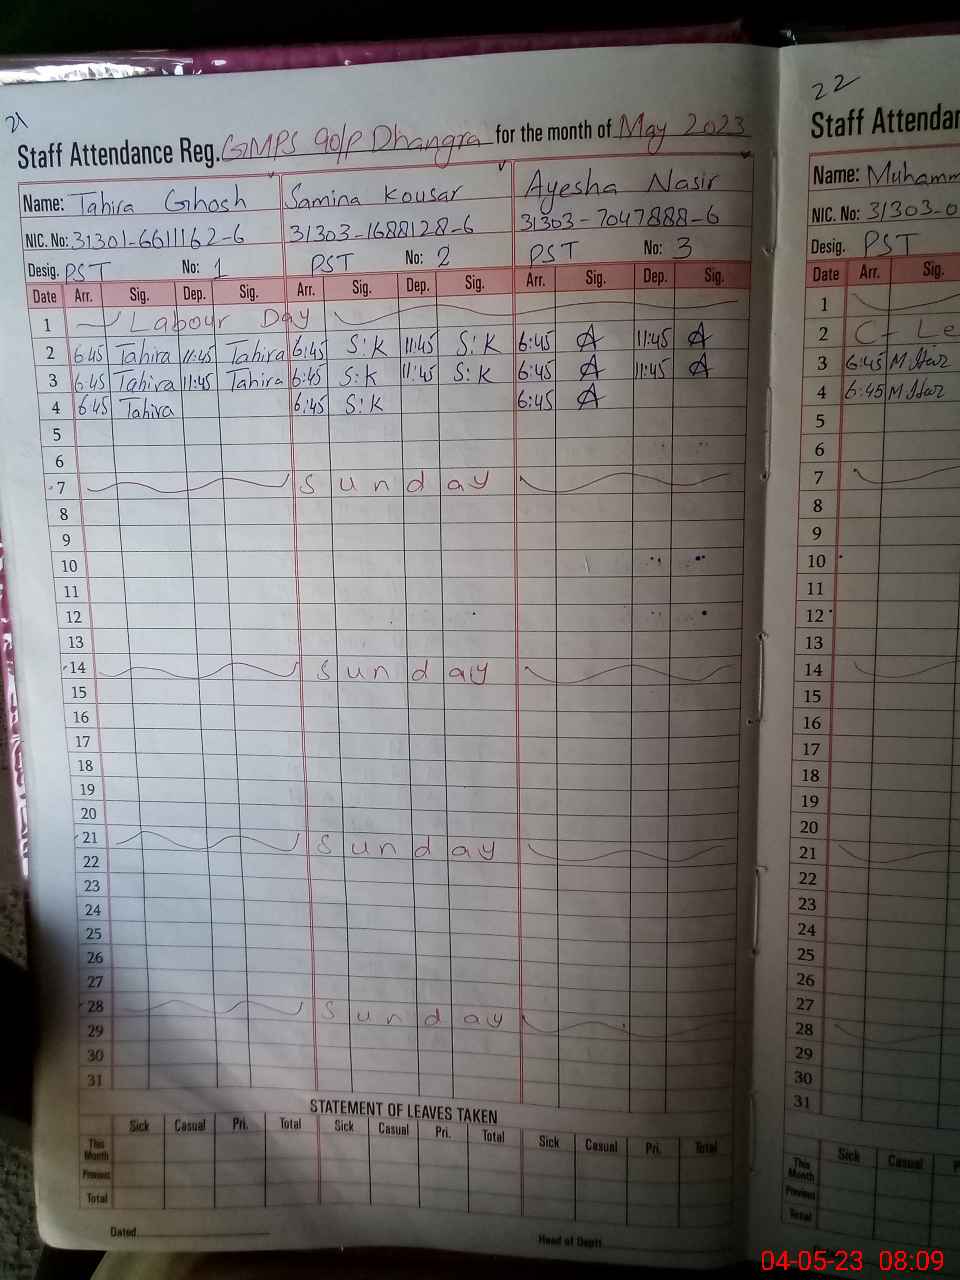 21
Staff Attendance Reg. GMPS 90/P Dhangra for the month of May 2023
Name: Tahira Ghosh Samina Kousar Ayesha Nasir
NIC. No: 31301-6611162-6 31303-1688128-6 31303-7047888-6
Desig. PST No: 1 PST No: 2 PST No: 3
Date Arr. Sig. Dep. Sig. Arr. Sig. Dep. Sig. Arr. Sig. Dep. Sig.
1 Labour Day
2 6:45 Tahira 11:45 Tahira 6:45 S:K 11:45 S:K 6:45 A 11:45 A
3 6:45 Tahira 11:45 Tahira 6:45 S:K 11:45 S:K 6:45 A 11:45 A
4 6:45 Tahira 6:45 S:K 6:45 A
5
6
7 Sunday
8
9
10
11
12
13
14 Sunday
15
16
17
18
19
20
21 Sunday
22
23
24
25
26
27
28 Sunday
29
30
31
STATEMENT OF LEAVES TAKEN
Sick Casual Pri. Total Sick Casual Pri. Total Sick Casual Pri. Total
This Month
Previous
Total
Dated
Head of Deptt.
22
Staff Attendan
Name: Muhamm
NIC. No: 31303-0
Desig. PST
Date Arr. Sig.
1
2 C- Le
3 6:45
4 6:45
5
6
7
8
9
10
11
12
13
14
15
16
17
18
19
20
21
22
23
24
25
26
27
28
29
30
31
Sick Casual
This Month
Previous
Total
04-05-23 08:09